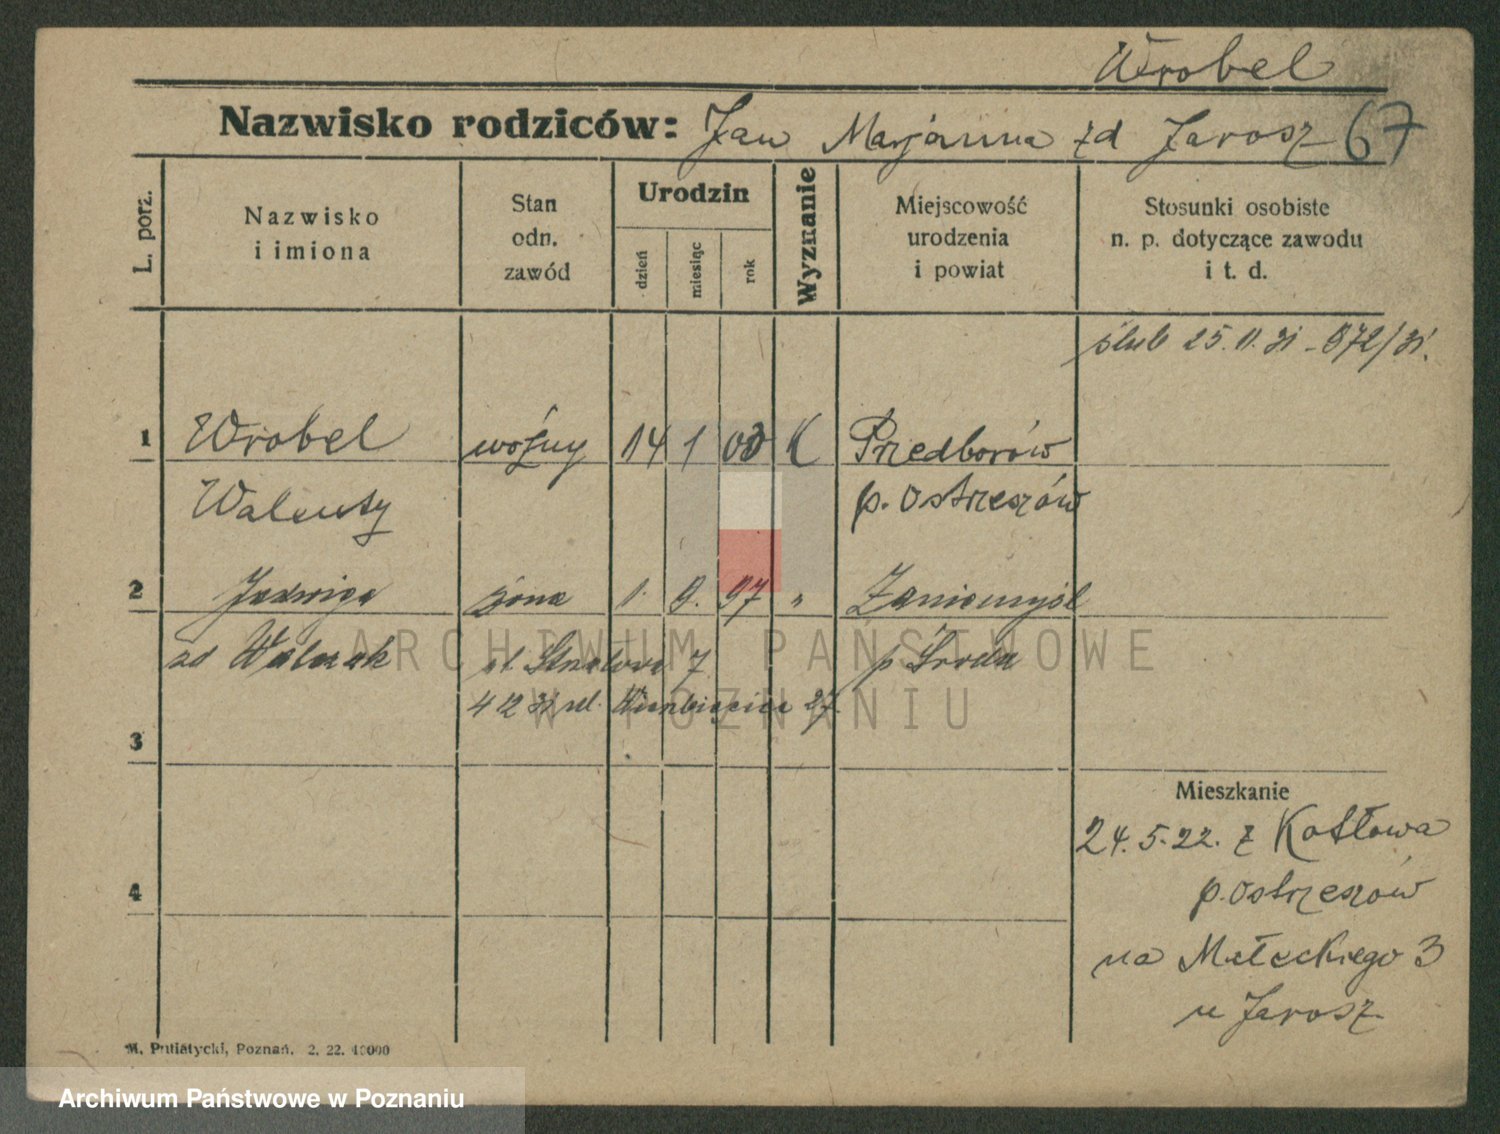 Wrobel
Nazwisko rodziców: Jan Marjanna zd Jarosz 67
L. porz.
Nazwisko i imiona
Stan odn. zawód
Urodzin
dzień
miesiąc
rok
Wyznanie
Miejscowość urodzenia i powiat
Stosunki osobiste n. p. dotyczące zawodu i t. d.
ślub 25. 11. 31 - 872/31.
1 Wrobel woźny 14 1 03 K Przedborów
Walenty p. Ostrzeszów
2 Jadwiga żona 1. 9. 97 " Zaniemyśl
zd Walczak ul. 7 p Środa
4 12 31 ul. 27.
3
Mieszkanie
24. 5. 22. z Kotłowa
4 p. Ostrzeszów
na Małeckiego 3
u Jarosz
M. Putiatycki, Poznań. 2. 22. 10000
ARCHIWUM PAŃSTWOWE
W POZNANIU
Archiwum Państwowe w Poznaniu